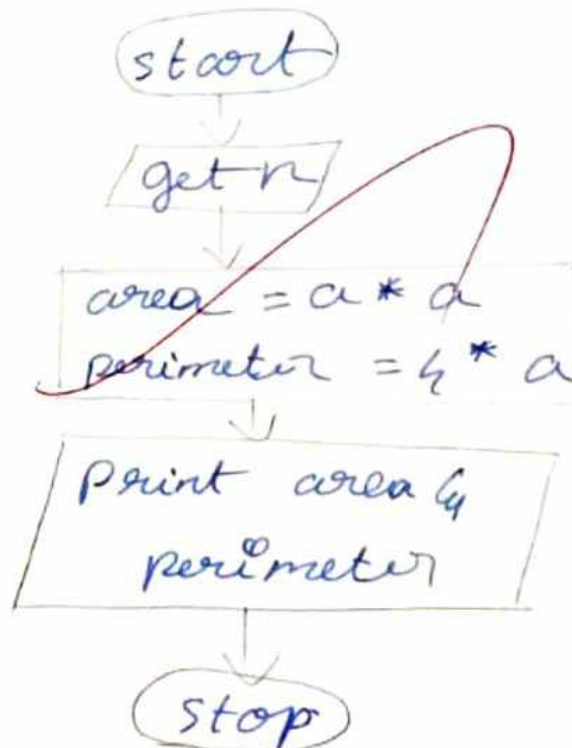 start
get n
area = a * a
perimeter = 4 * a
Print area &
perimeter
stop